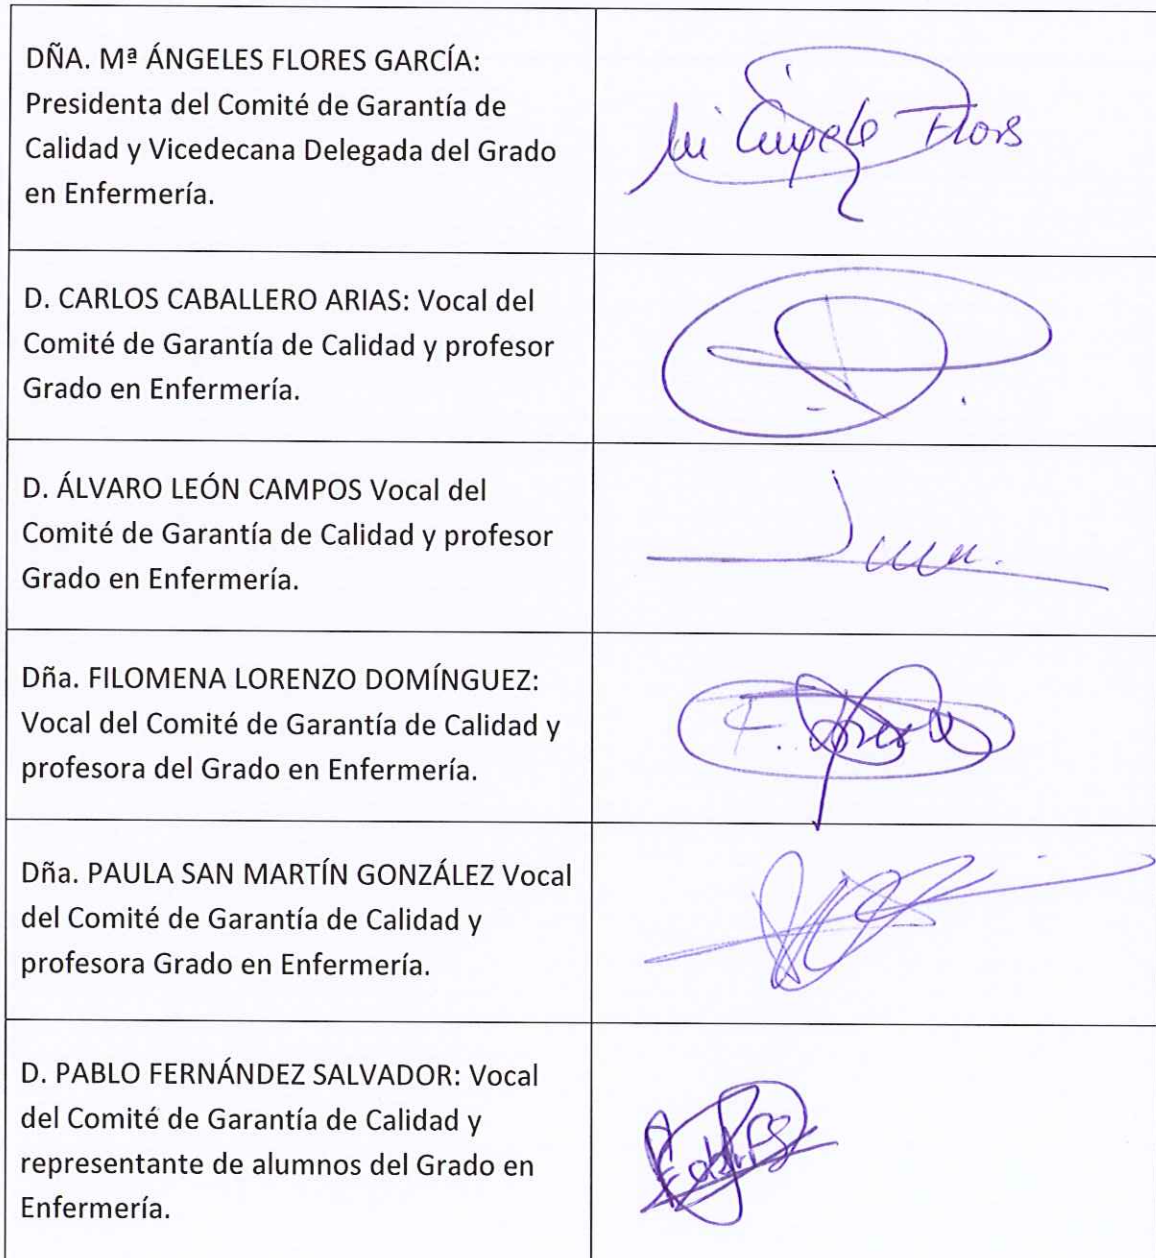 DÑA. Mª ÁNGELES FLORES GARCÍA:
Presidenta del Comité de Garantía de
Calidad y Vicedecana Delegada del Grado
en Enfermería.
D. CARLOS CABALLERO ARIAS: Vocal del
Comité de Garantía de Calidad y profesor
Grado en Enfermería.
D. ÁLVARO LEÓN CAMPOS Vocal del
Comité de Garantía de Calidad y profesor
Grado en Enfermería.
Dña. FILOMENA LORENZO DOMÍNGUEZ:
Vocal del Comité de Garantía de Calidad y
profesora del Grado en Enfermería.
Dña. PAULA SAN MARTÍN GONZÁLEZ Vocal
del Comité de Garantía de Calidad y
profesora Grado en Enfermería.
D. PABLO FERNÁNDEZ SALVADOR: Vocal
del Comité de Garantía de Calidad y
representante de alumnos del Grado en
Enfermería.